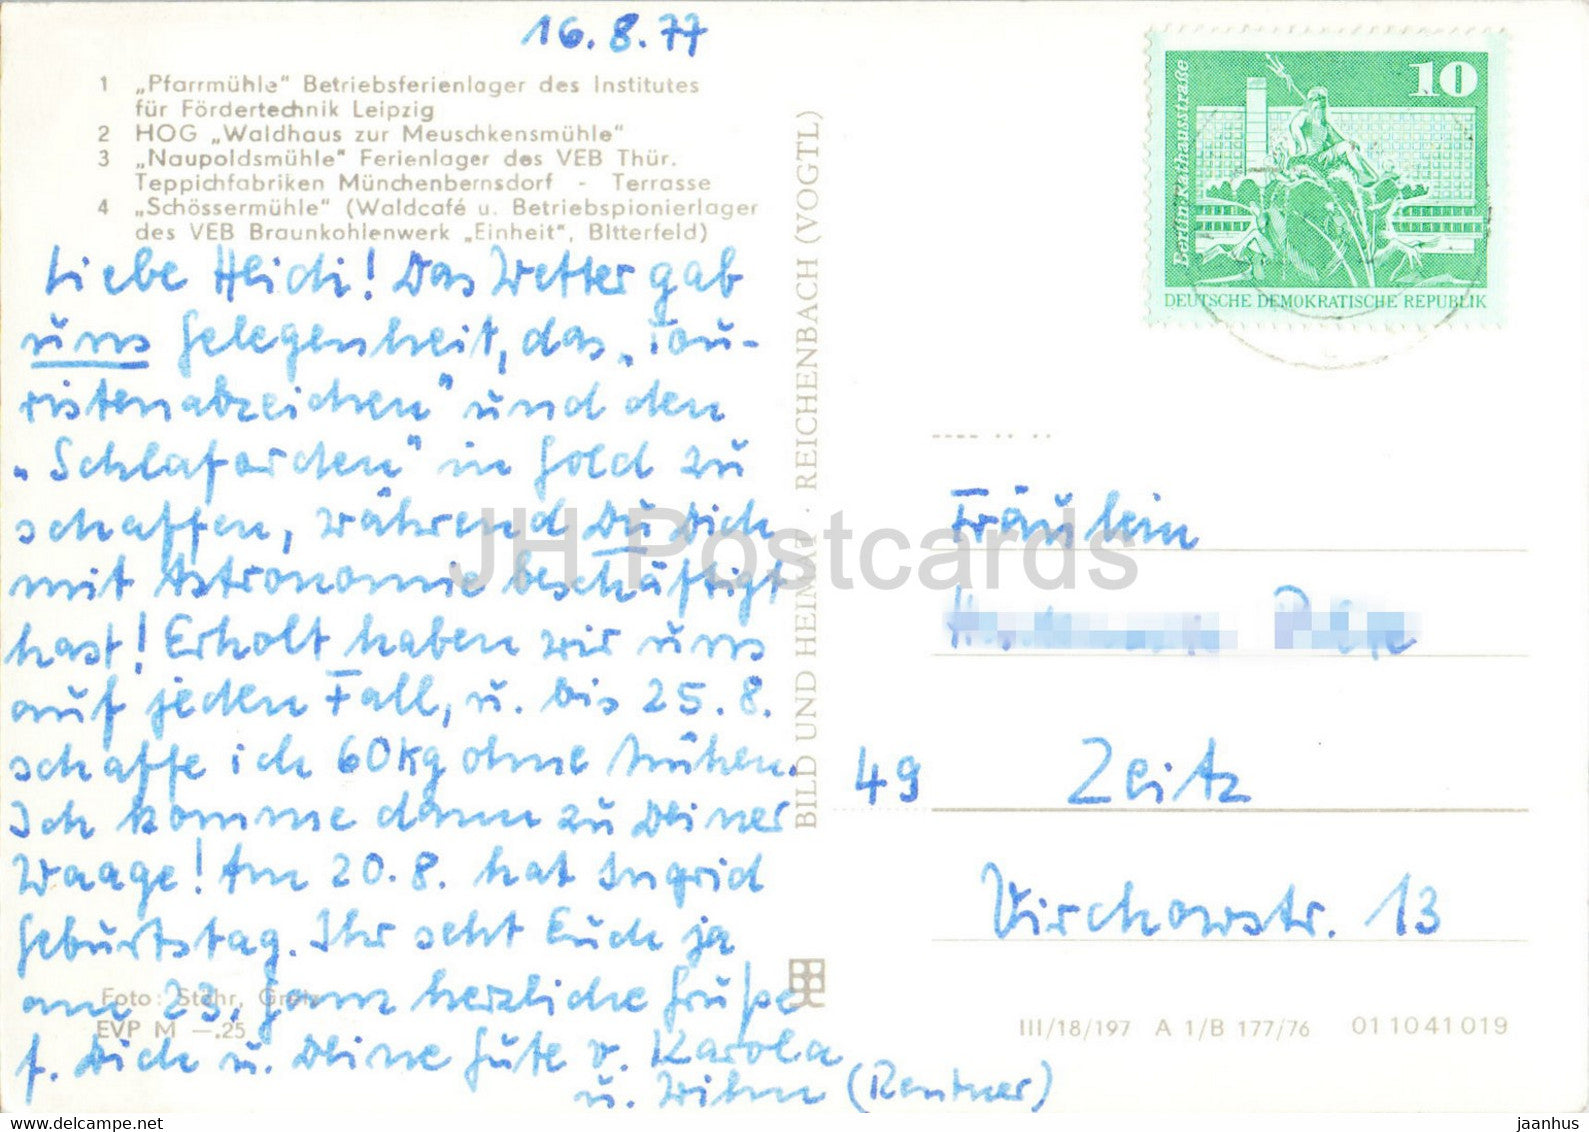 16.8.77
1 „Pfarrmühle" Betriebsferienlager des Institutes
für Fördertechnik Leipzig
2 HOG „Waldhaus zur Meuschkensmühle"
3 „Naupoldsmühle" Ferienlager des VEB Thür.
Teppichfabriken Münchenbernsdorf - Terrasse
4 „Schössermühle" (Waldcafé u. Betriebspionierlager
des VEB Braunkohlenwerk „Einheit", Bitterfeld)
Liebe Heidi! Das Wetter gab
uns Gelegenheit, das „Tou-
ristenabzeichen" und den
„Schlaforden" in Gold zu
schaffen, während Du Dich
mit Astronomie beschäftigt
hast! Erholt haben wir uns
auf jeden Fall, u. bis 25.8.
schaffe ich 60kg ohne Mühen.
Ich komme dann zu Deiner
Waage! Am 20.8. hat Ingrid
Geburtstag. Ihr seht Euch ja
am 23. Ganz herzliche Grüße
f. Dich u. Deine Güte v. Karola
u. Wilm (Rentner)
Foto: Stöhr, Greiz
EVP M —.25
BILD UND HEIMAT · REICHENBACH (VOGTL)
10
Berlin, Rathausstraße
DEUTSCHE DEMOKRATISCHE REPUBLIK
Fräulein
49 Zeitz
Virchowstr. 13
III/18/197 A 1/B 177/76 01 10 41 019
JH Postcards
www.delcampe.net
jaanhus